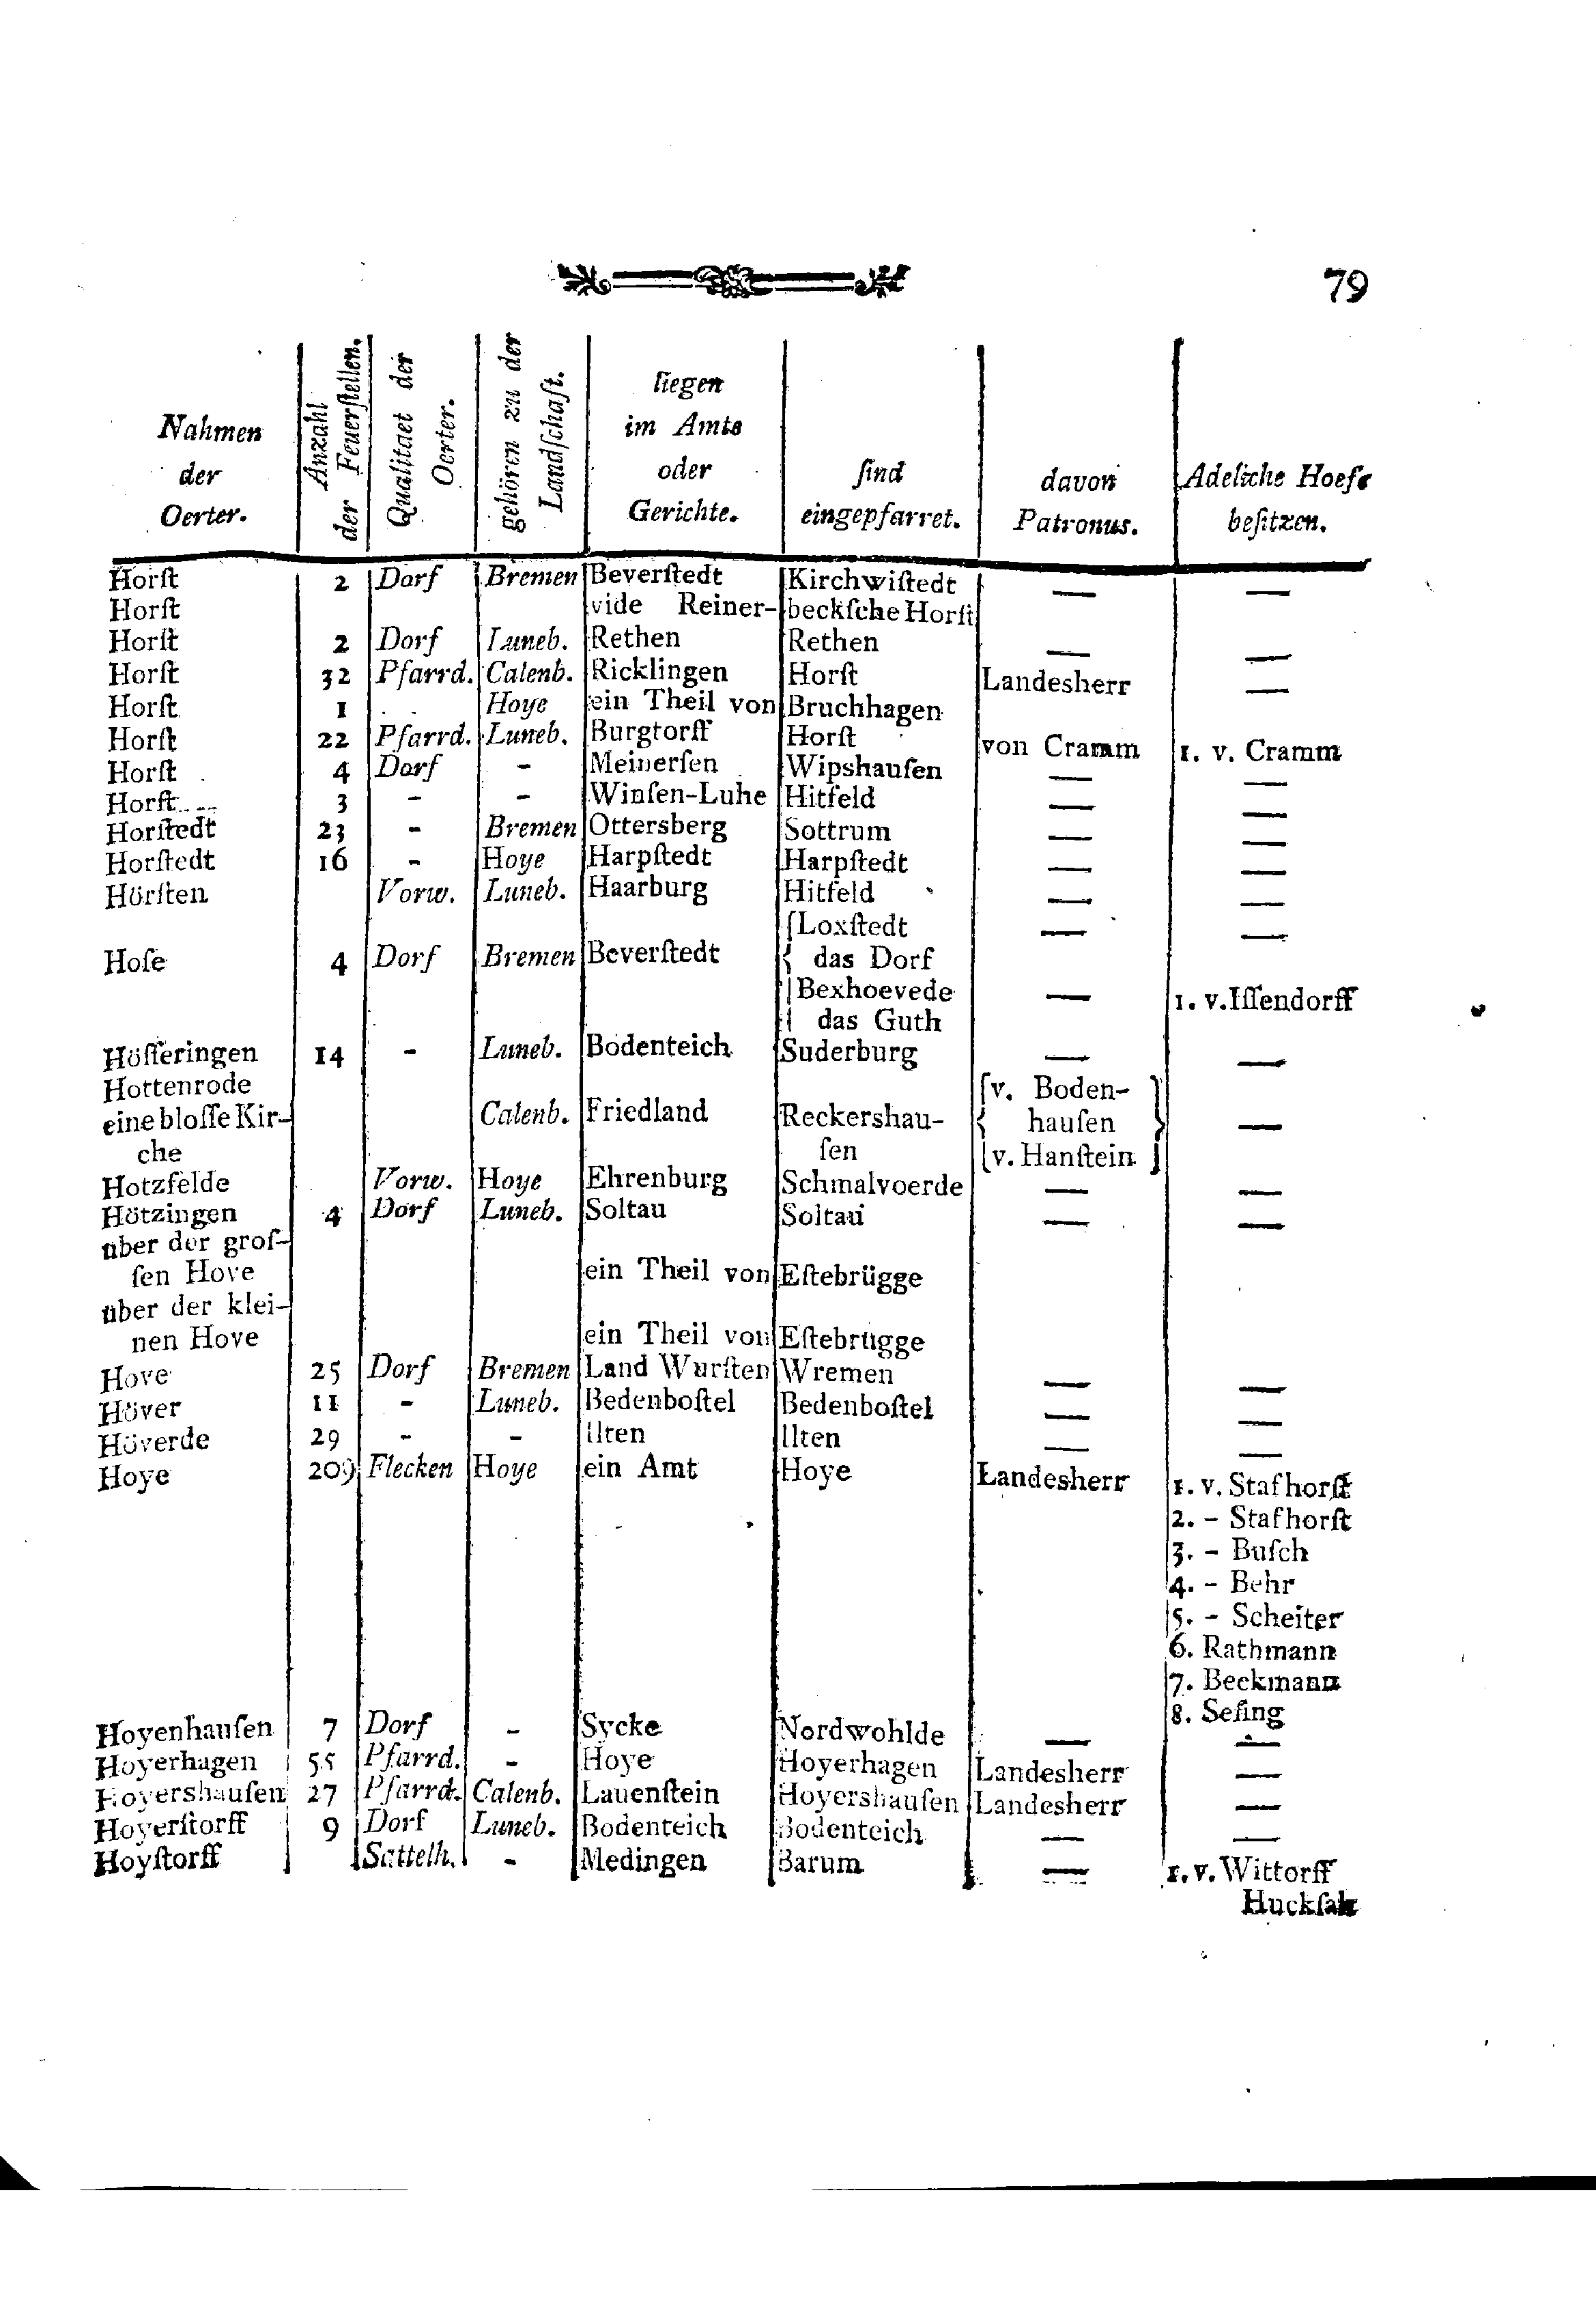 79
Nahmen der Oerter. | Anzahl der Feuerſtellen. | Qualitaet der Oerter. | gehören zu der Landſchaft. | liegen im Amte oder Gerichte. | ſind eingepfarret. | davon Patronus. | Adeliche Hoefe beſitzen.
Horſt 2 Dorf Bremen Beverſtedt Kirchwiſtedt — —
Horſt vide Reiner- beckſche Horſt
Horſt 2 Dorf Luneb. Rethen Rethen — —
Horſt 32 Pfarrd. Calenb. Ricklingen Horſt Landesherr —
Horſt 1 Hoye ein Theil von Bruchhagen
Horſt 22 Pfarrd. Luneb. Burgtorff Horſt von Cramm 1. v. Cramm
Horſt 4 Dorf - Meinerſen Wipshauſen — —
Horſt 3 - - Winſen-Luhe Hitfeld — —
Horſtedt 23 - Bremen Ottersberg Sottrum — —
Horſtedt 16 - Hoye Harpſtedt Harpſtedt — —
Hörſten Vorw. Luneb. Haarburg Hitfeld — —
Loxſtedt — —
Hoſe 4 Dorf Bremen Beverſtedt { das Dorf
Bexhoevede — 1. v. Iſſendorff
das Guth
Höſſeringen 14 - Luneb. Bodenteich Suderburg — —
Hottenrode { v. Boden- }
eine bloſſe Kir- Calenb. Friedland Reckershau- hauſen —
che ſen v. Hanſtein
Hotzfelde Vorw. Hoye Ehrenburg Schmalvoerde — —
Hötzingen 4 Dorf Luneb. Soltau Soltau — —
über der groſ-
ſen Hove ein Theil von Eſtebrügge
über der klei-
nen Hove ein Theil von Eſtebrügge
Hove 25 Dorf Bremen Land Wurſten Wremen — —
Höver 11 - Luneb. Bedenboſtel Bedenboſtel — —
Höverde 29 - - Ilten Ilten — —
Hoye 209 Flecken Hoye ein Amt Hoye Landesherr 1. v. Stafhorſt
2. - Stafhorſt
3. - Buſch
4. - Behr
5. - Scheiter
6. Rathmann
7. Beckmann
8. Seſing
Hoyenhauſen 7 Dorf - Sycke Nordwohlde — —
Hoyerhagen 55 Pfarrd. - Hoye Hoyerhagen Landesherr —
Hoyershauſen 27 Pfarrd. Calenb. Lauenſtein Hoyershauſen Landesherr —
Hoyerſtorff 9 Dorf Luneb. Bodenteich Bodenteich — —
Hoyſtorff Sattelh. - Medingen Barum — 1. v. Wittorff